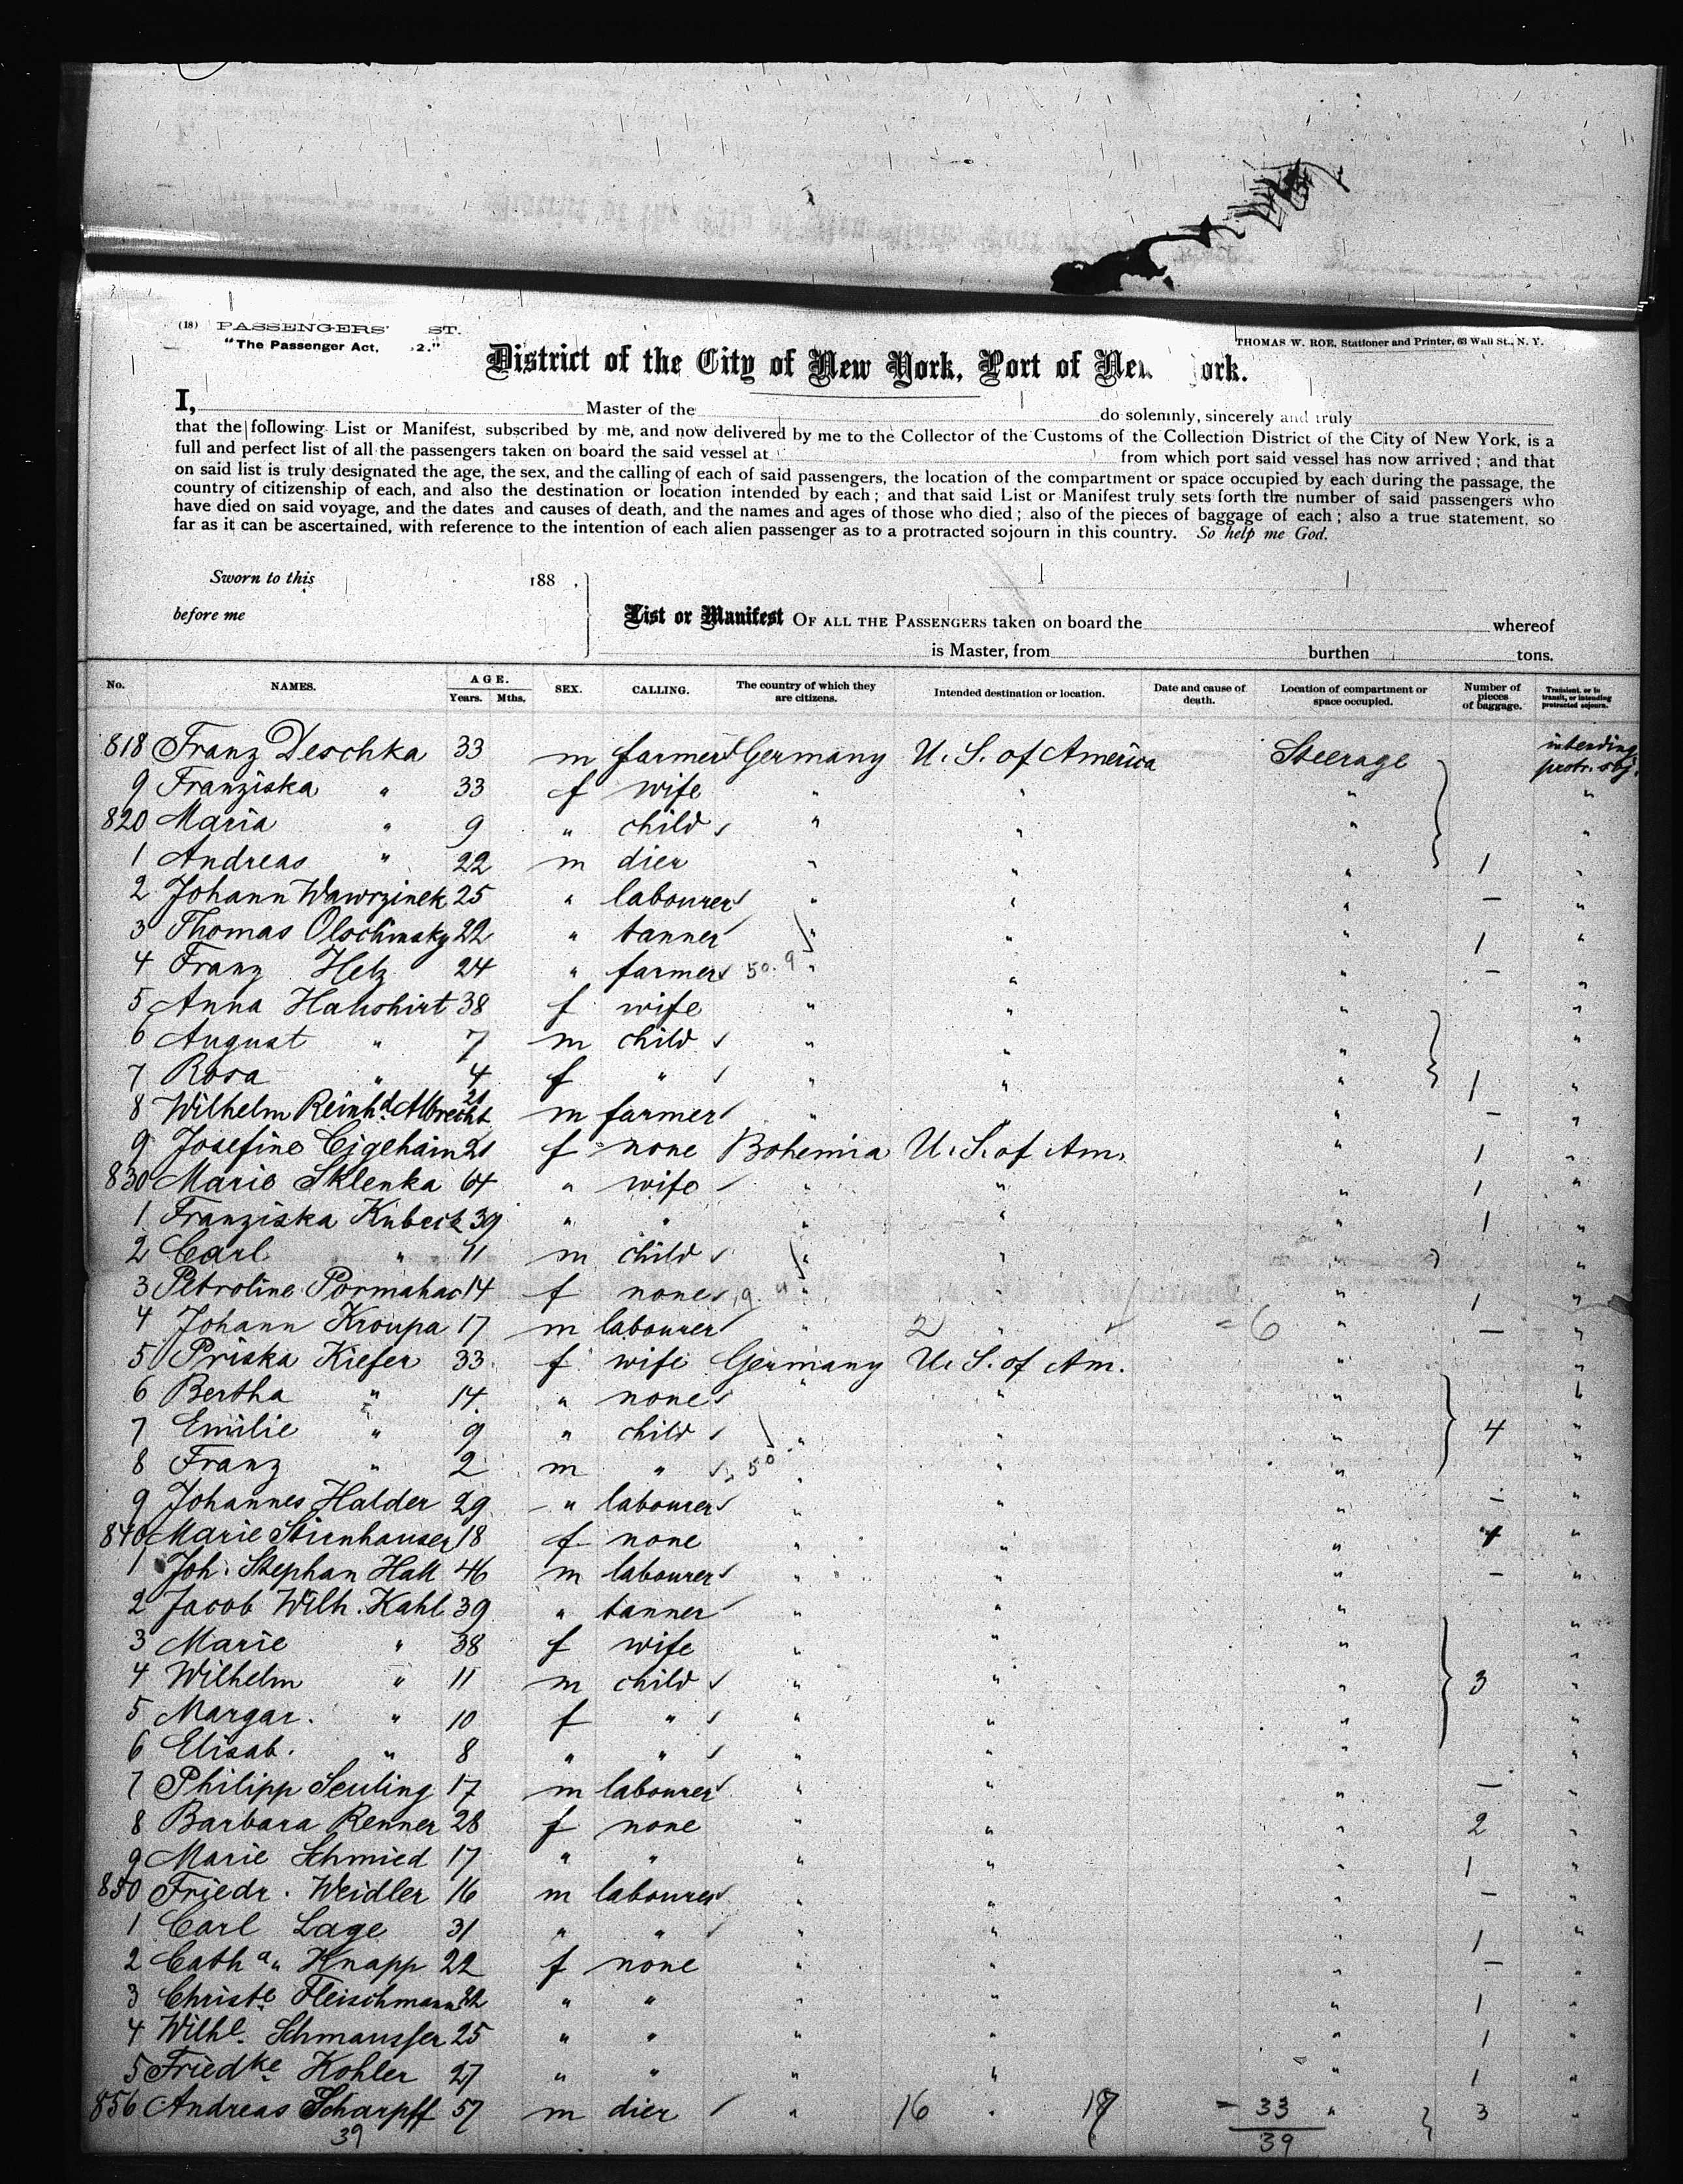 (18) PASSENGERS' ST.
"The Passenger Act, 2."
THOMAS W. ROE, Stationer and Printer, 63 Wall St., N. Y.
District of the City of New York, Port of New ork.
I, Master of the do solemnly, sincerely and truly
that the following List or Manifest, subscribed by me, and now delivered by me to the Collector of the Customs of the Collection District of the City of New York, is a
full and perfect list of all the passengers taken on board the said vessel at from which port said vessel has now arrived; and that
on said list is truly designated the age, the sex, and the calling of each of said passengers, the location of the compartment or space occupied by each during the passage, the
country of citizenship of each, and also the destination or location intended by each; and that said List or Manifest truly sets forth the number of said passengers who
have died on said voyage, and the dates and causes of death, and the names and ages of those who died; also of the pieces of baggage of each; also a true statement, so
far as it can be ascertained, with reference to the intention of each alien passenger as to a protracted sojourn in this country. So help me God.
Sworn to this 188 .
before me
List or Manifest OF ALL THE PASSENGERS taken on board the whereof
is Master, from burthen tons.
No. NAMES. AGE. Years. Mths. SEX. CALLING. The country of which they are citizens. Intended destination or location. Date and cause of death. Location of compartment or space occupied. Number of pieces of baggage. Transient, or in transit, or intending protracted sojourn.
818 Franz Deschka 33 m farmer Germany U. S. of America Steerage intending protr. soj.
9 Franziska " 33 f wife " " " "
820 Maria " 9 " child " " " "
1 Andreas " 22 m dier " " " 1 "
2 Johann Wawrzinek 25 " labourer " " " — "
3 Thomas 22 " tanner " " " 1 "
4 Franz Helz 24 " farmer 50. 9 " " " — "
5 Anna Hahshirt 38 f wife " " " "
6 August " 7 m child " " " "
7 Rosa " 4 f " " " " 1 "
8 Wilhelm Reinhd. Albrecht 21 m farmer " " " — "
9 Josefine 21 f none Bohemia U. S. of Am. " 1 "
830 Marie Sklenka 64 " wife " " " 1 "
1 Franziska Kubeck 39 " " " " " 1 "
2 Carl " 11 m child " " " "
3 Petroline Pormahac 14 f none " " " 1 "
4 Johann Kroupa 17 m labourer " 2 " = 6 " — "
5 Priska Kiefer 33 f wife Germany U. S. of Am. " "
6 Bertha " 14 " none " " " "
7 Emilie " 9 " child " " " 4 "
8 Franz " 2 m " 50 " " " "
9 Johannes Halder 29 " labourer " " " — "
840 Marie Stirnhauser 18 f none " " " 4 "
1 Joh. Stephan Hall 46 m labourer " " " — "
2 Jacob Wilh. Kahl 39 " tanner " " " "
3 Marie " 38 f wife " " " "
4 Wilhelm " 11 m child " " " 3 "
5 Margar. " 10 f " " " " "
6 Elisab. " 8 " " " " " "
7 Philipp Seuling 17 m labourer " " " — "
8 Barbara Renner 28 f none " " " 2 "
9 Marie Schmied 17 " " " " " 1 "
850 Friedr. Weidler 16 m labourer " " " — "
1 Carl Lage 31 " " " " " 1 "
2 Catha. Knapp 22 f none " " " — "
3 Christe. Fleischmann 22 " " " " " 1 "
4 Wilhe. Schmausser 25 " " " " " 1 "
5 Friedke. Kohler 27 " " " " " 1 "
856 Andreas Scharpff 57 m dier " 16 " 17 - 33 " 3 "
39 39